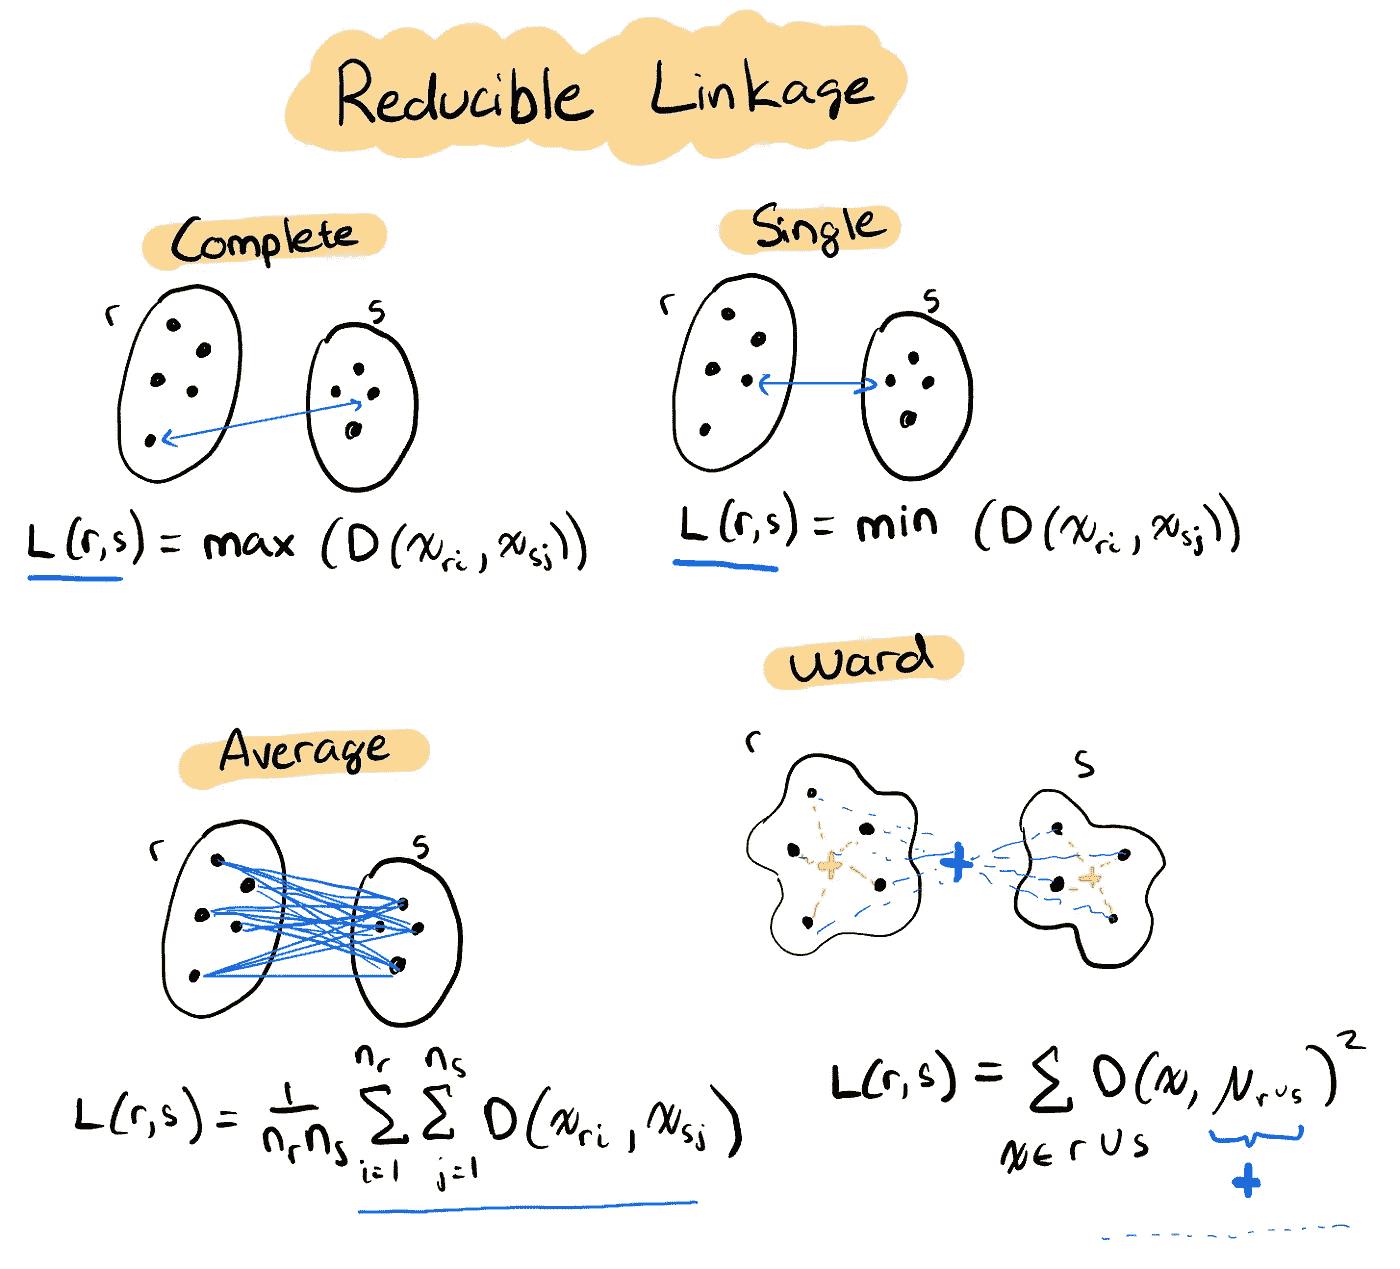 Reducible Linkage
Complete
r s
L(r,s) = max (D(x_{ri}, x_{sj}))
Single
r s
L(r,s) = min (D(x_{ri}, x_{sj}))
Average
r s
L(r,s) = \frac{1}{n_r n_s} \sum_{i=1}^{n_r} \sum_{j=1}^{n_s} D(x_{ri}, x_{sj})
Ward
r s
L(r,s) = \sum_{x∈r∪s} D(x, μ_{r∪s})^2
+